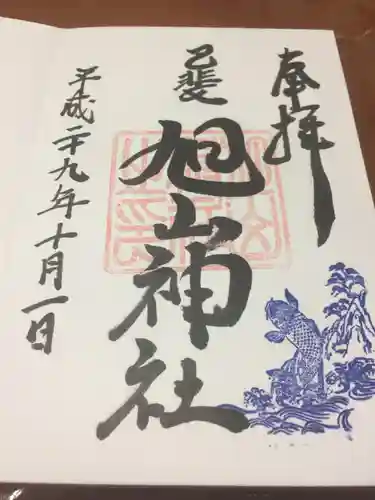 奉拝
己斐
旭山神社
平成二十九年十月一日